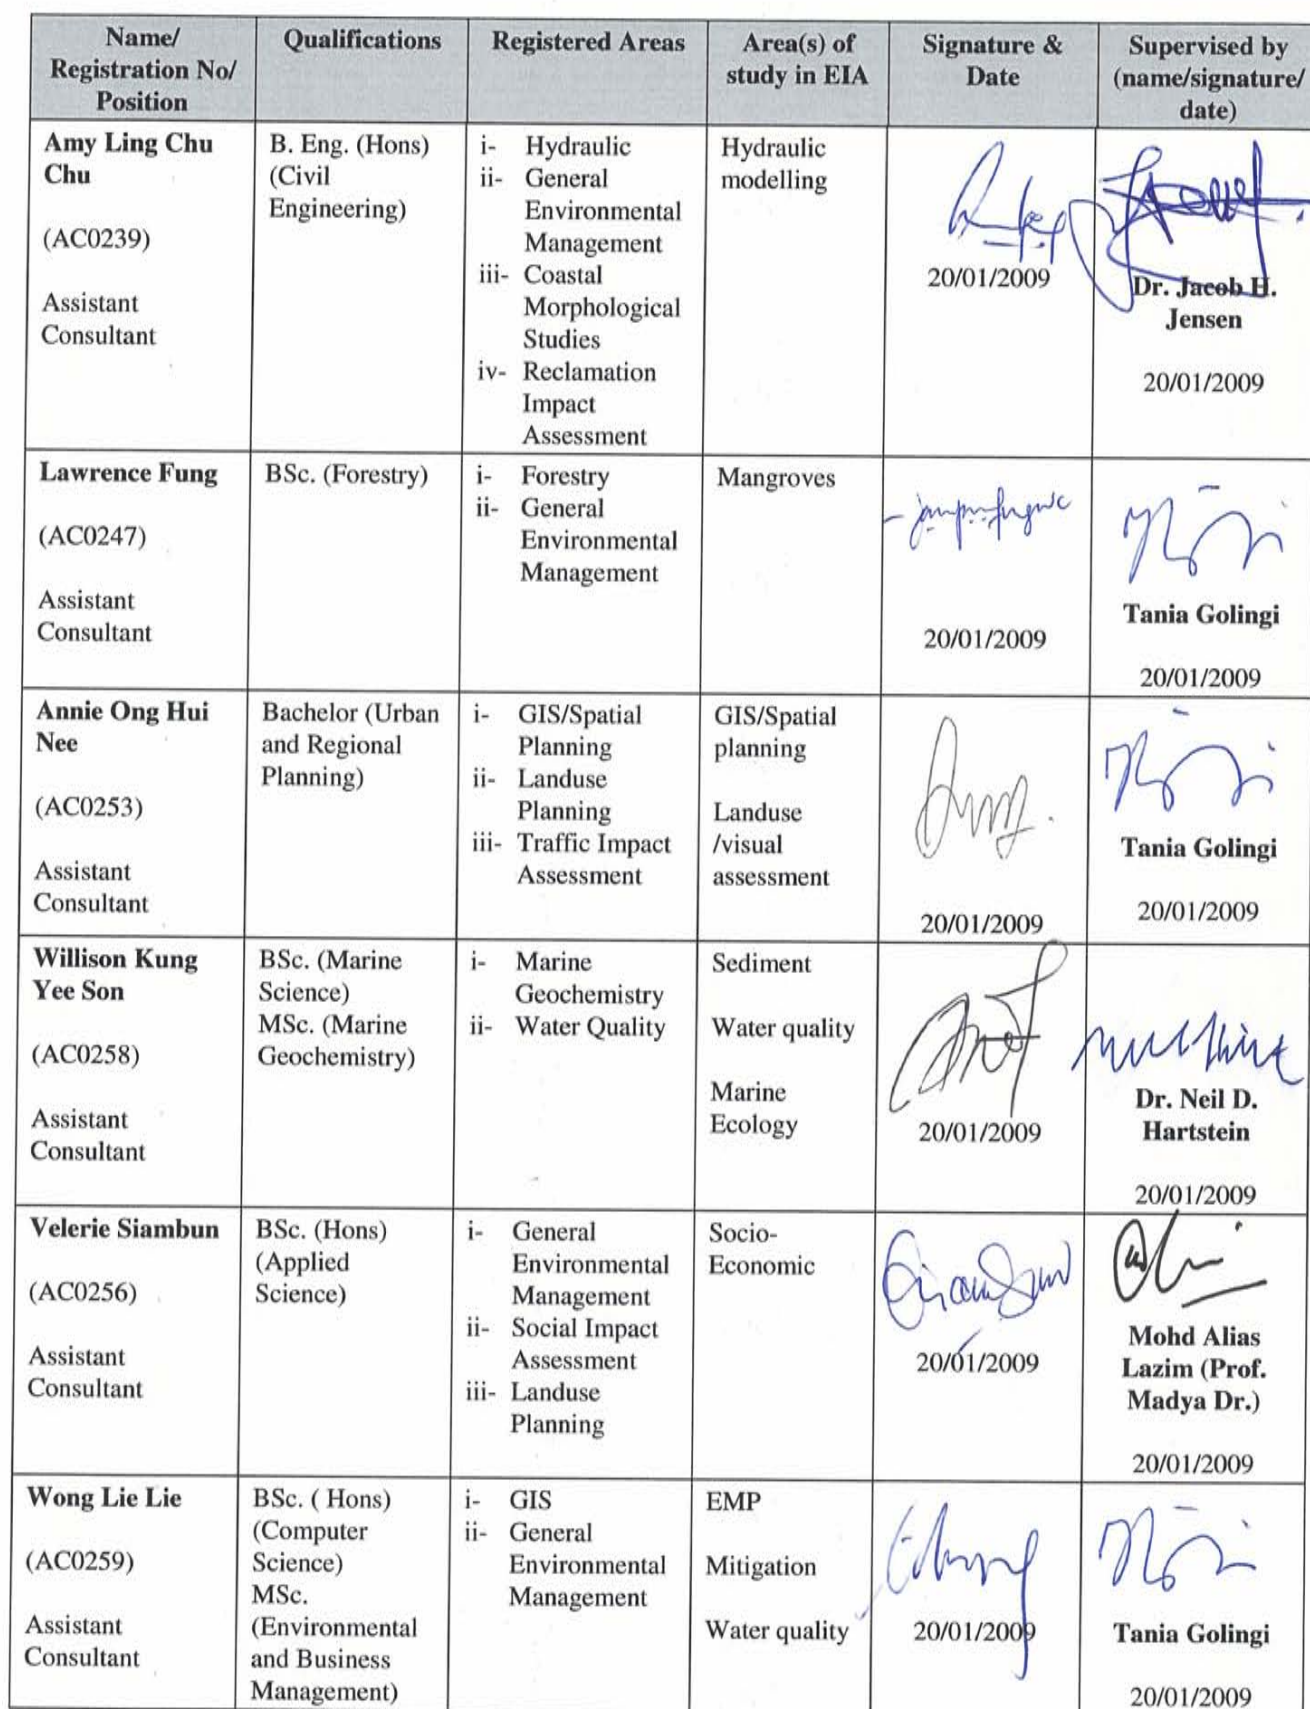 Name/
Registration No/
Position
Qualifications
Registered Areas
Area(s) of
study in EIA
Signature &
Date
Supervised by
(name/signature/
date)
Amy Ling Chu
Chu
(AC0239)
Assistant
Consultant
B. Eng. (Hons)
(Civil
Engineering)
i- Hydraulic
ii- General
Environmental
Management
iii- Coastal
Morphological
Studies
iv- Reclamation
Impact
Assessment
Hydraulic
modelling
20/01/2009
Dr. Jacob H.
Jensen
20/01/2009
Lawrence Fung
(AC0247)
Assistant
Consultant
BSc. (Forestry)
i- Forestry
ii- General
Environmental
Management
Mangroves
20/01/2009
Tania Golingi
20/01/2009
Annie Ong Hui
Nee
(AC0253)
Assistant
Consultant
Bachelor (Urban
and Regional
Planning)
i- GIS/Spatial
Planning
ii- Landuse
Planning
iii- Traffic Impact
Assessment
GIS/Spatial
planning
Landuse
/visual
assessment
20/01/2009
Tania Golingi
20/01/2009
Willison Kung
Yee Son
(AC0258)
Assistant
Consultant
BSc. (Marine
Science)
MSc. (Marine
Geochemistry)
i- Marine
Geochemistry
ii- Water Quality
Sediment
Water quality
Marine
Ecology
20/01/2009
Dr. Neil D.
Hartstein
20/01/2009
Velerie Siambun
(AC0256)
Assistant
Consultant
BSc. (Hons)
(Applied
Science)
i- General
Environmental
Management
ii- Social Impact
Assessment
iii- Landuse
Planning
Socio-
Economic
20/01/2009
Mohd Alias
Lazim (Prof.
Madya Dr.)
20/01/2009
Wong Lie Lie
(AC0259)
Assistant
Consultant
BSc. ( Hons)
(Computer
Science)
MSc.
(Environmental
and Business
Management)
i- GIS
ii- General
Environmental
Management
EMP
Mitigation
Water quality
20/01/2009
Tania Golingi
20/01/2009